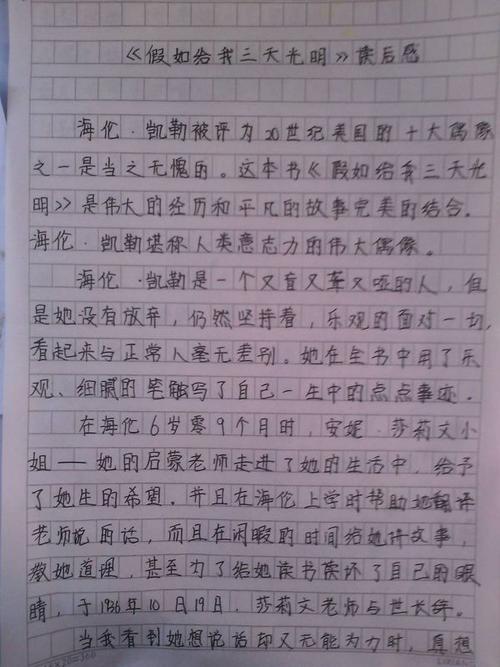 《假如给我三天光明》读后感
海伦·凯勒被评为20世纪美国的十大偶像
之一是当之无愧的。这本书《假如给我三天光
明》是伟大的经历和平凡的故事完美的结合.
海伦·凯勒堪称人类意志力的伟大偶像。
海伦·凯勒是一个又盲又聋又哑的人,但
是她没有放弃,仍然坚持着,乐观的面对一切,
看起来与正常人毫无差别。她在全书中用了乐
观、细腻的笔触写了自己一生中的点点事迹.
在海伦6岁零9个月时,安妮·莎莉文小
姐——她的启蒙老师走进了她的生活中,给予
了她生的希望.并且在海伦上学时帮助她翻译
老师说的话,而且在闲暇的时间给她讲故事,
教她道理,甚至为了给她读书读坏了自己的眼
睛,于1936年10月19日.莎莉文老师与世长辞。
当我看到她想说话却又无能为力时,真想